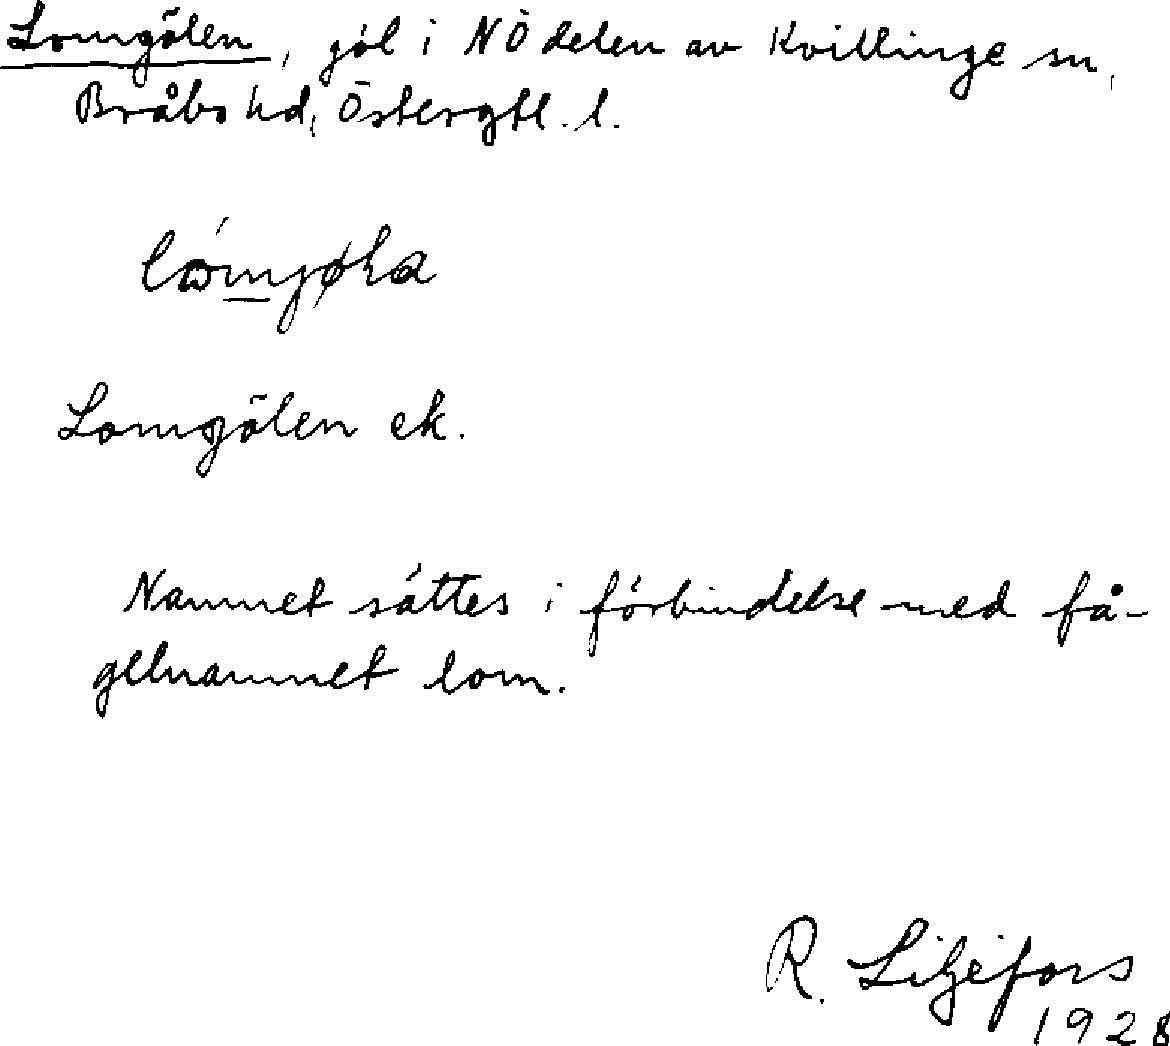 Lomgölen, göl i NÖ delen av Kvillinge sn,
Bråbo hd, Östergtl. l.
Lomgölen ek.
Namnet sättes i förbindelse med få-
gelnamnet lom.
R. Liljefors
1928